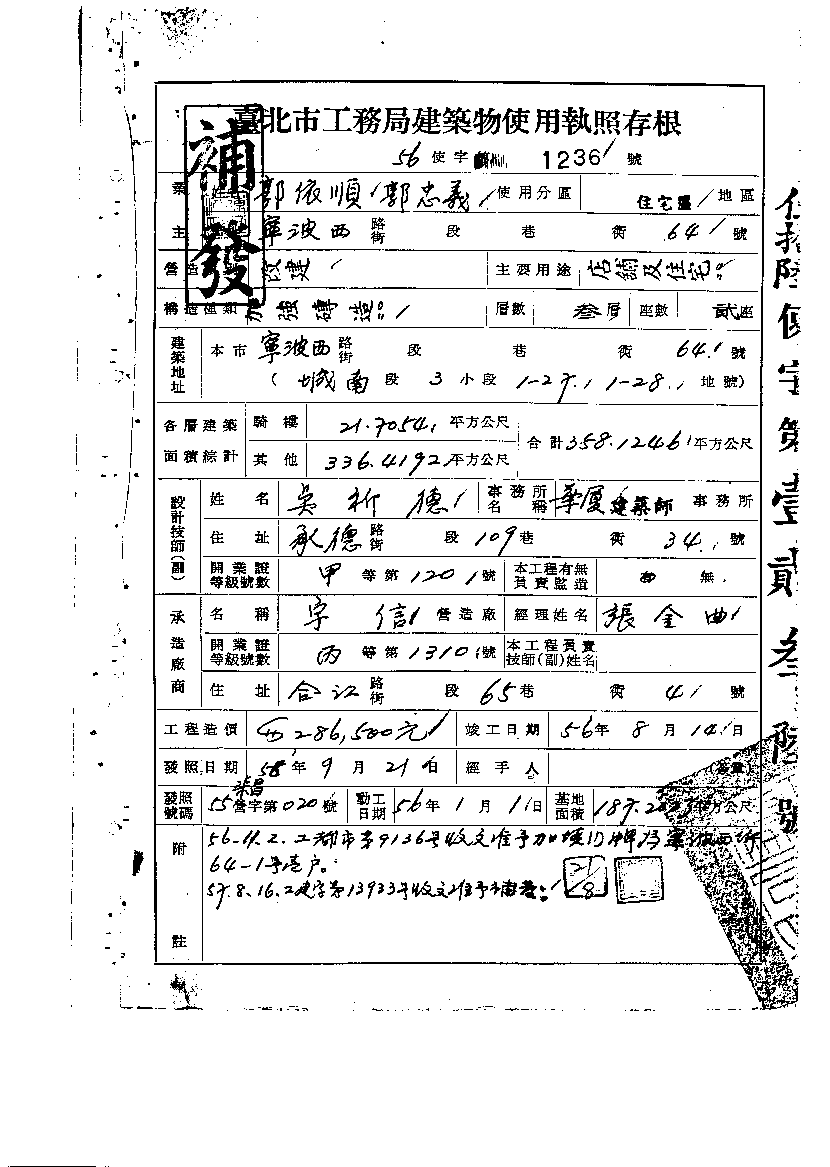 臺北市工務局建築物使用執照存根
補發
56 使字第 1236 號
業 姓 郭依順 郭忠義 使用分區 住宅區 地區
主 寧波西 路街 段 巷 衖 64 號
營造 改建 主要用途 店鋪及住宅
構造種類 加強磚造 層數 叁層 座數 貳座
建築地址 本市 寧波西 路街 段 巷 衖 64 號
(城南 段 3 小段 1-27, 1-28, 地號)
各層建築面積綜計 騎樓 21.7054 平方公尺 合計 358.1246 平方公尺
其他 336.4192 平方公尺
設計技師(副) 姓名 吳析德 事務所名稱 華厦建築師 事務所
住址 承德 路街 段 109 巷 衖 34 號
開業證等級號數 甲 等第 1201 號 本工程有無負責監造 無
承造廠商 名稱 宇信 營造廠 經理姓名 張金曲
開業證等級號數 丙 等第 1310 號 本工程負責技師(副)姓名
住址 合江 路街 段 65 巷 衖 4 號
工程造價 286,500元 竣工日期 56 年 8 月 14 日
發照日期 56 年 9 月 21 日 經手人
發照號碼 55 營字第 020 號 動工日期 56 年 1 月 1 日 基地面積 平方公尺
附註 56.11.2.工都市字9136號收文准予加填門牌為寧波西街
64-1號壹户。
57.8.16.工建字第13933號收文准予補發
21/8
伍拾陸使字第壹貳叁陸號